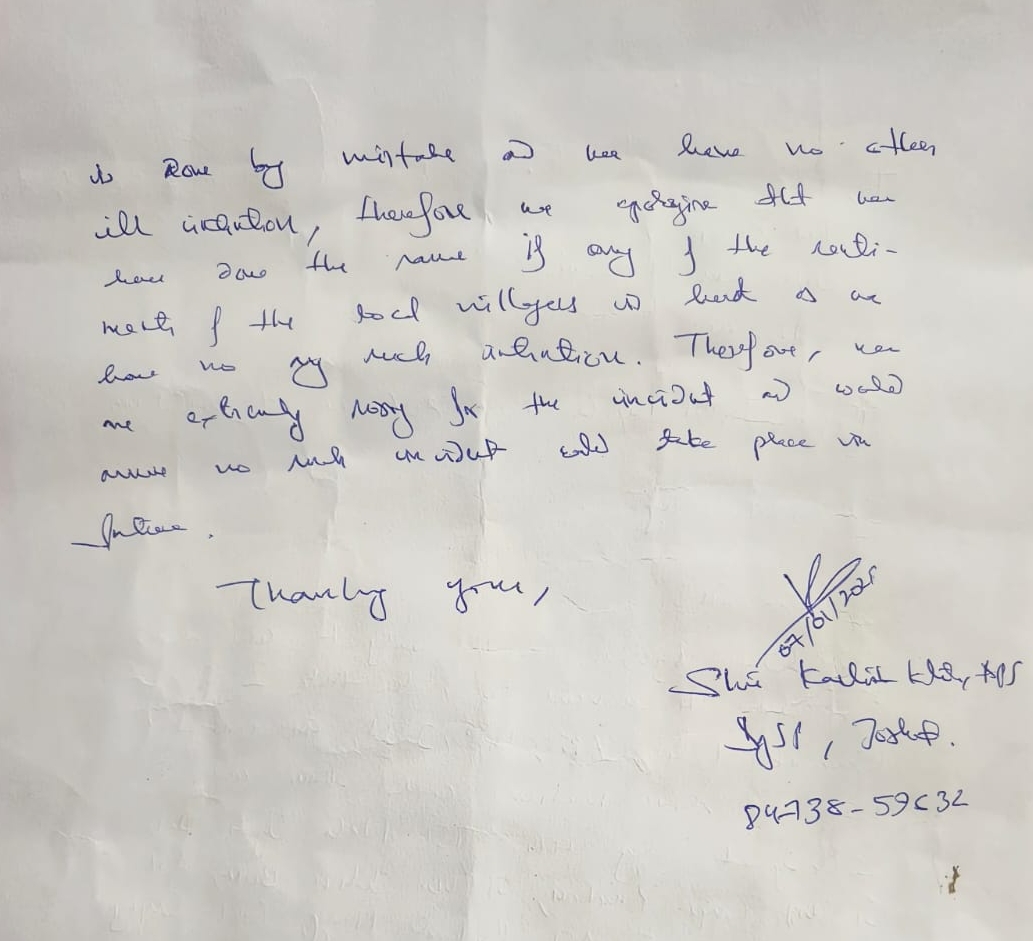 is done by mistake and we have no other
ill intention, therefore we apologize that we
have done the same if any of the senti-
ments of the local villagers is hurt as we
have no any such intention. Therefore, we
are extremely sorry for the incident and would
assure no such incident could take place in
future.
Thanking you,
07/01/2025
Shri
DySP,
84738-59632